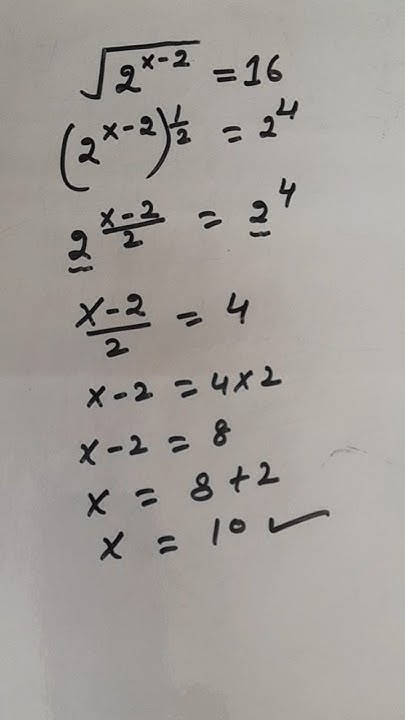 √(2^(x-2)) = 16
(2^(x-2))^(1/2) = 2^4
2^((x-2)/2) = 2^4
(x-2)/2 = 4
x-2 = 4×2
x-2 = 8
x = 8+2
x = 10 ✓